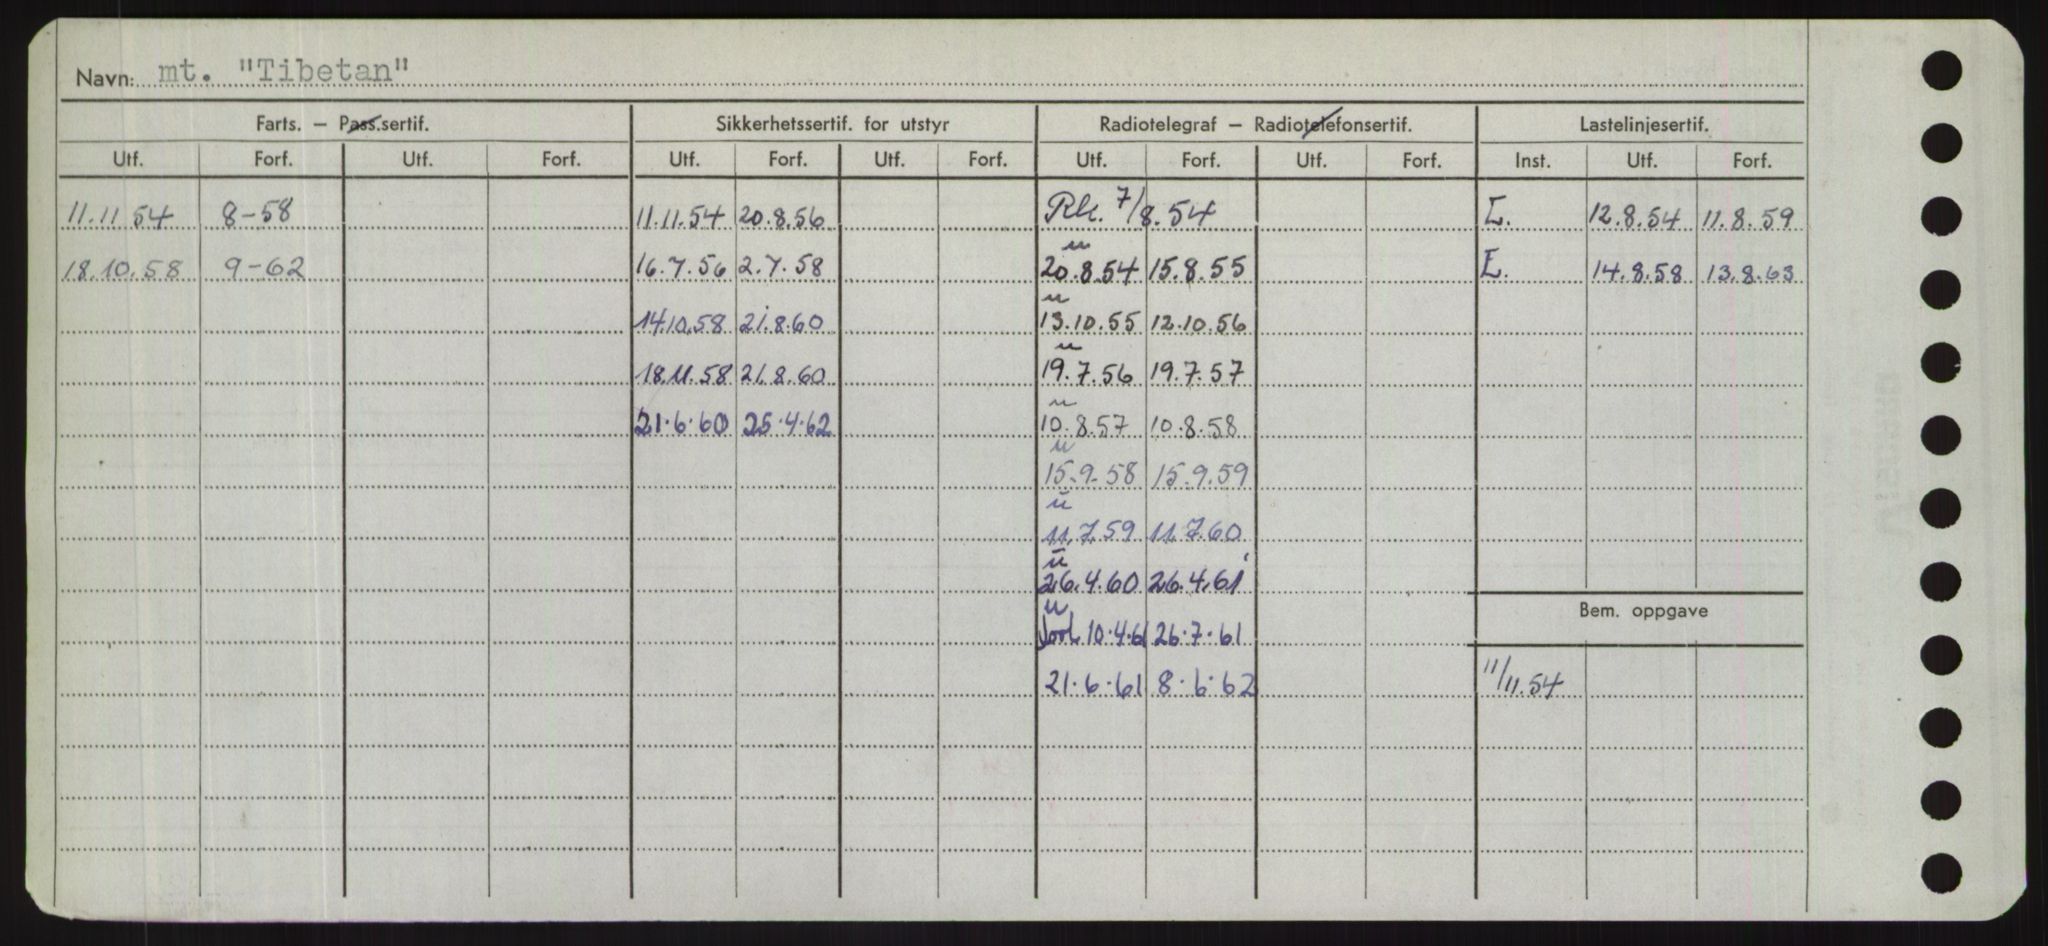 Navn: mt. "Tibetan"
Farts. — Pass.sertif. Sikkerhetssertif. for utstyr Radiotelegraf — Radiotelefonsertif. Lastelinjesertif.
Utf. Forf. Utf. Forf. Utf. Forf. Utf. Forf. Utf. Forf. Utf. Forf. Inst. Utf. Forf.
11.11 54 8-58 11.11.54 20.8.56 7/8.54 E. 12.8.54 11.8.59
u
18.10.58 9-62 16.7.56 2.7.58 20.8.54 15.8.55 E. 14.8.58 13.8.63
u
14.10.58 21.8.60 13.10.55 12.10.56
u
18.11.58 21.8.60 19.7.56 19.7.57
u
21.6.60 25.4.62 10.8.57 10.8.58
u
15.9.58 15.9.59
u
11.7.59 11.7.60
u
26.4.60 26.4.61
u
10.4.61 26.7.61
Bem. oppgave
21.6.61 8.6.62 11/11.54